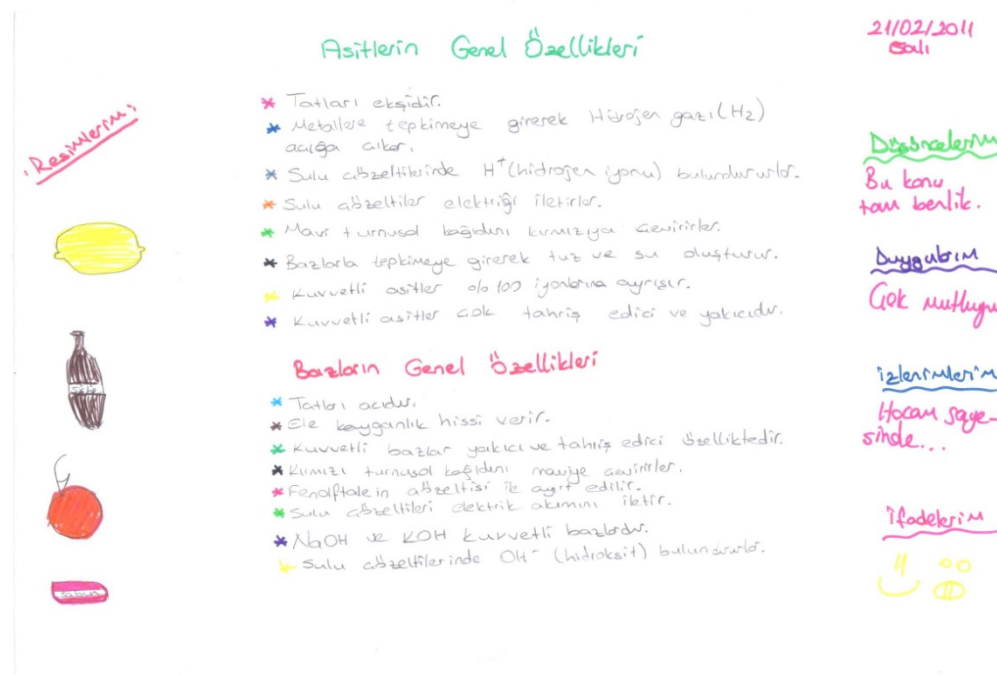 21/02/2011
Salı
Asitlerin Genel Özellikleri
Resimlerim
* Tatları ekşidir.
* Metallerle tepkimeye girerek Hidrojen gazı (H2)
açığa çıkar.
* Sulu çözeltilerinde H+ (hidrojen iyonu) bulundururlar.
* Sulu çözeltiler elektriği iletirler.
* Mavi turnusol kağıdını kırmızıya çevirirler.
* Bazlarla tepkimeye girerek tuz ve su oluşturur.
* Kuvvetli asitler %100 iyonlarına ayrışır.
* Kuvvetli asitler çok tahriş edici ve yakıcıdır.
Bazların Genel Özellikleri
* Tatları acıdır.
* Ele kayganlık hissi verir.
* Kuvvetli bazlar yakıcı ve tahriş edici özelliktedir.
* Kırmızı turnusol kağıdını maviye çevirirler.
* Fenolftalein çözeltisi ile ayırt edilir.
* Sulu çözeltileri elektrik akımını iletir.
* NaOH ve KOH kuvvetli bazlardır.
* Sulu çözeltilerinde OH- (hidroksit) bulundururlar.
sabun
Düşüncelerim
Bu konu
tam benlik.
Duygularım
Çok mutluyum
İzlenimlerim
Hocam saye-
sinde...
İfadelerim